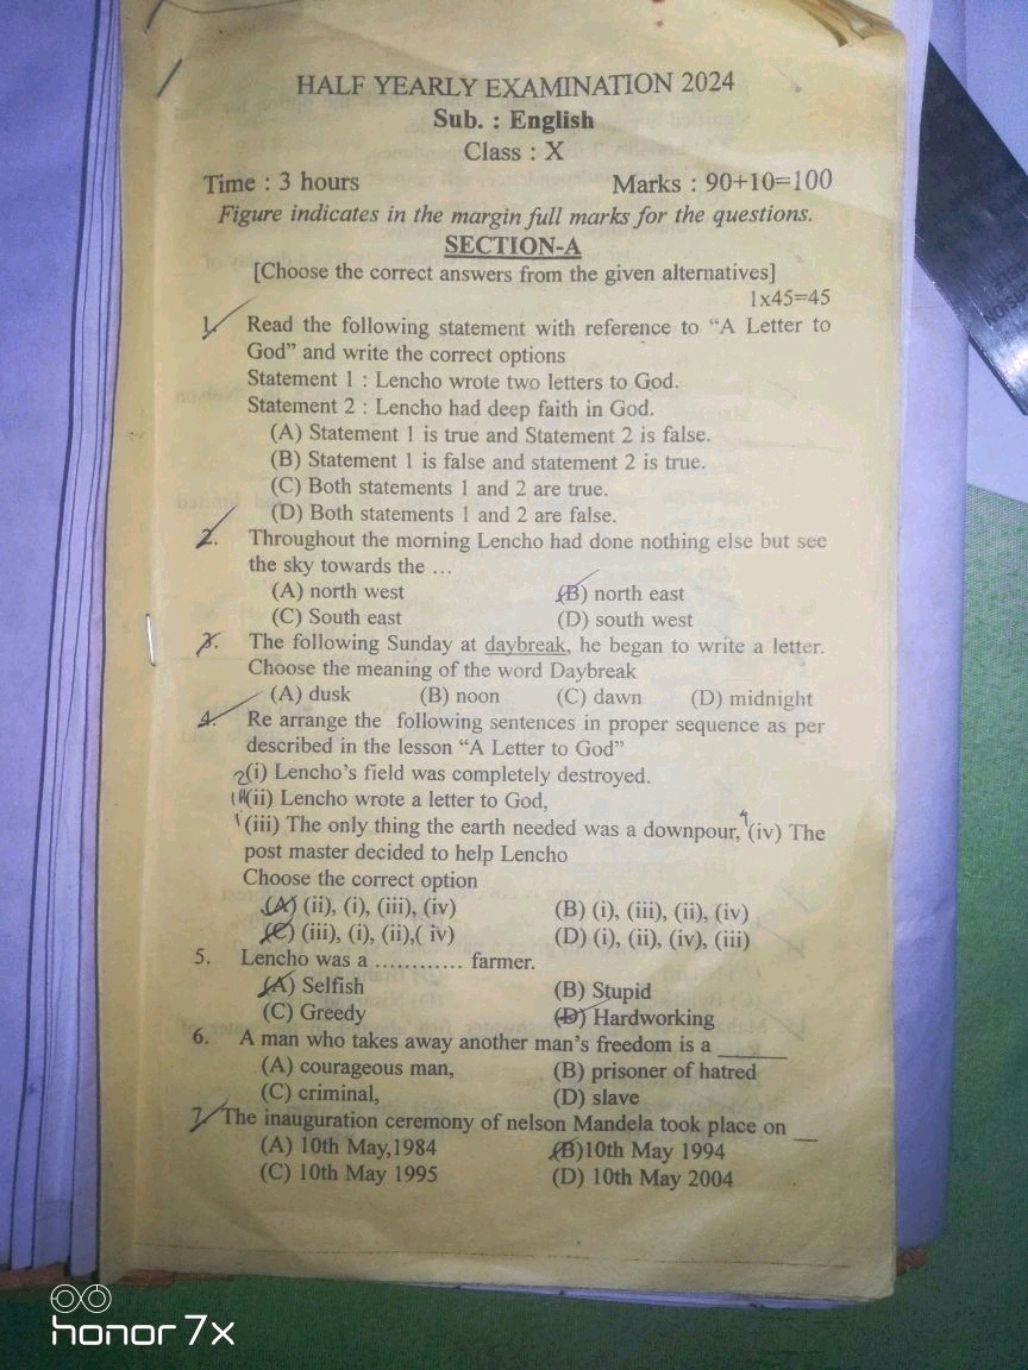 HALF YEARLY EXAMINATION 2024
Sub. : English
Class : X
Time : 3 hours Marks : 90+10=100
Figure indicates in the margin full marks for the questions.
SECTION-A
[Choose the correct answers from the given alternatives]
1x45=45
1. Read the following statement with reference to “A Letter to
God” and write the correct options
Statement 1 : Lencho wrote two letters to God.
Statement 2 : Lencho had deep faith in God.
(A) Statement 1 is true and Statement 2 is false.
(B) Statement 1 is false and statement 2 is true.
(C) Both statements 1 and 2 are true.
(D) Both statements 1 and 2 are false.
2. Throughout the morning Lencho had done nothing else but see
the sky towards the ...
(A) north west (B) north east
(C) South east (D) south west
3. The following Sunday at daybreak, he began to write a letter.
Choose the meaning of the word Daybreak
(A) dusk (B) noon (C) dawn (D) midnight
4. Re arrange the following sentences in proper sequence as per
described in the lesson “A Letter to God”
2(i) Lencho’s field was completely destroyed.
(ii) Lencho wrote a letter to God,
1(iii) The only thing the earth needed was a downpour, 4(iv) The
post master decided to help Lencho
Choose the correct option
(A) (ii), (i), (iii), (iv) (B) (i), (iii), (ii), (iv)
(C) (iii), (i), (ii),( iv) (D) (i), (ii), (iv), (iii)
5. Lencho was a ............ farmer.
(A) Selfish (B) Stupid
(C) Greedy (D) Hardworking
6. A man who takes away another man’s freedom is a ______
(A) courageous man, (B) prisoner of hatred
(C) criminal, (D) slave
7. The inauguration ceremony of nelson Mandela took place on __
(A) 10th May,1984 (B)10th May 1994
(C) 10th May 1995 (D) 10th May 2004
honor 7x